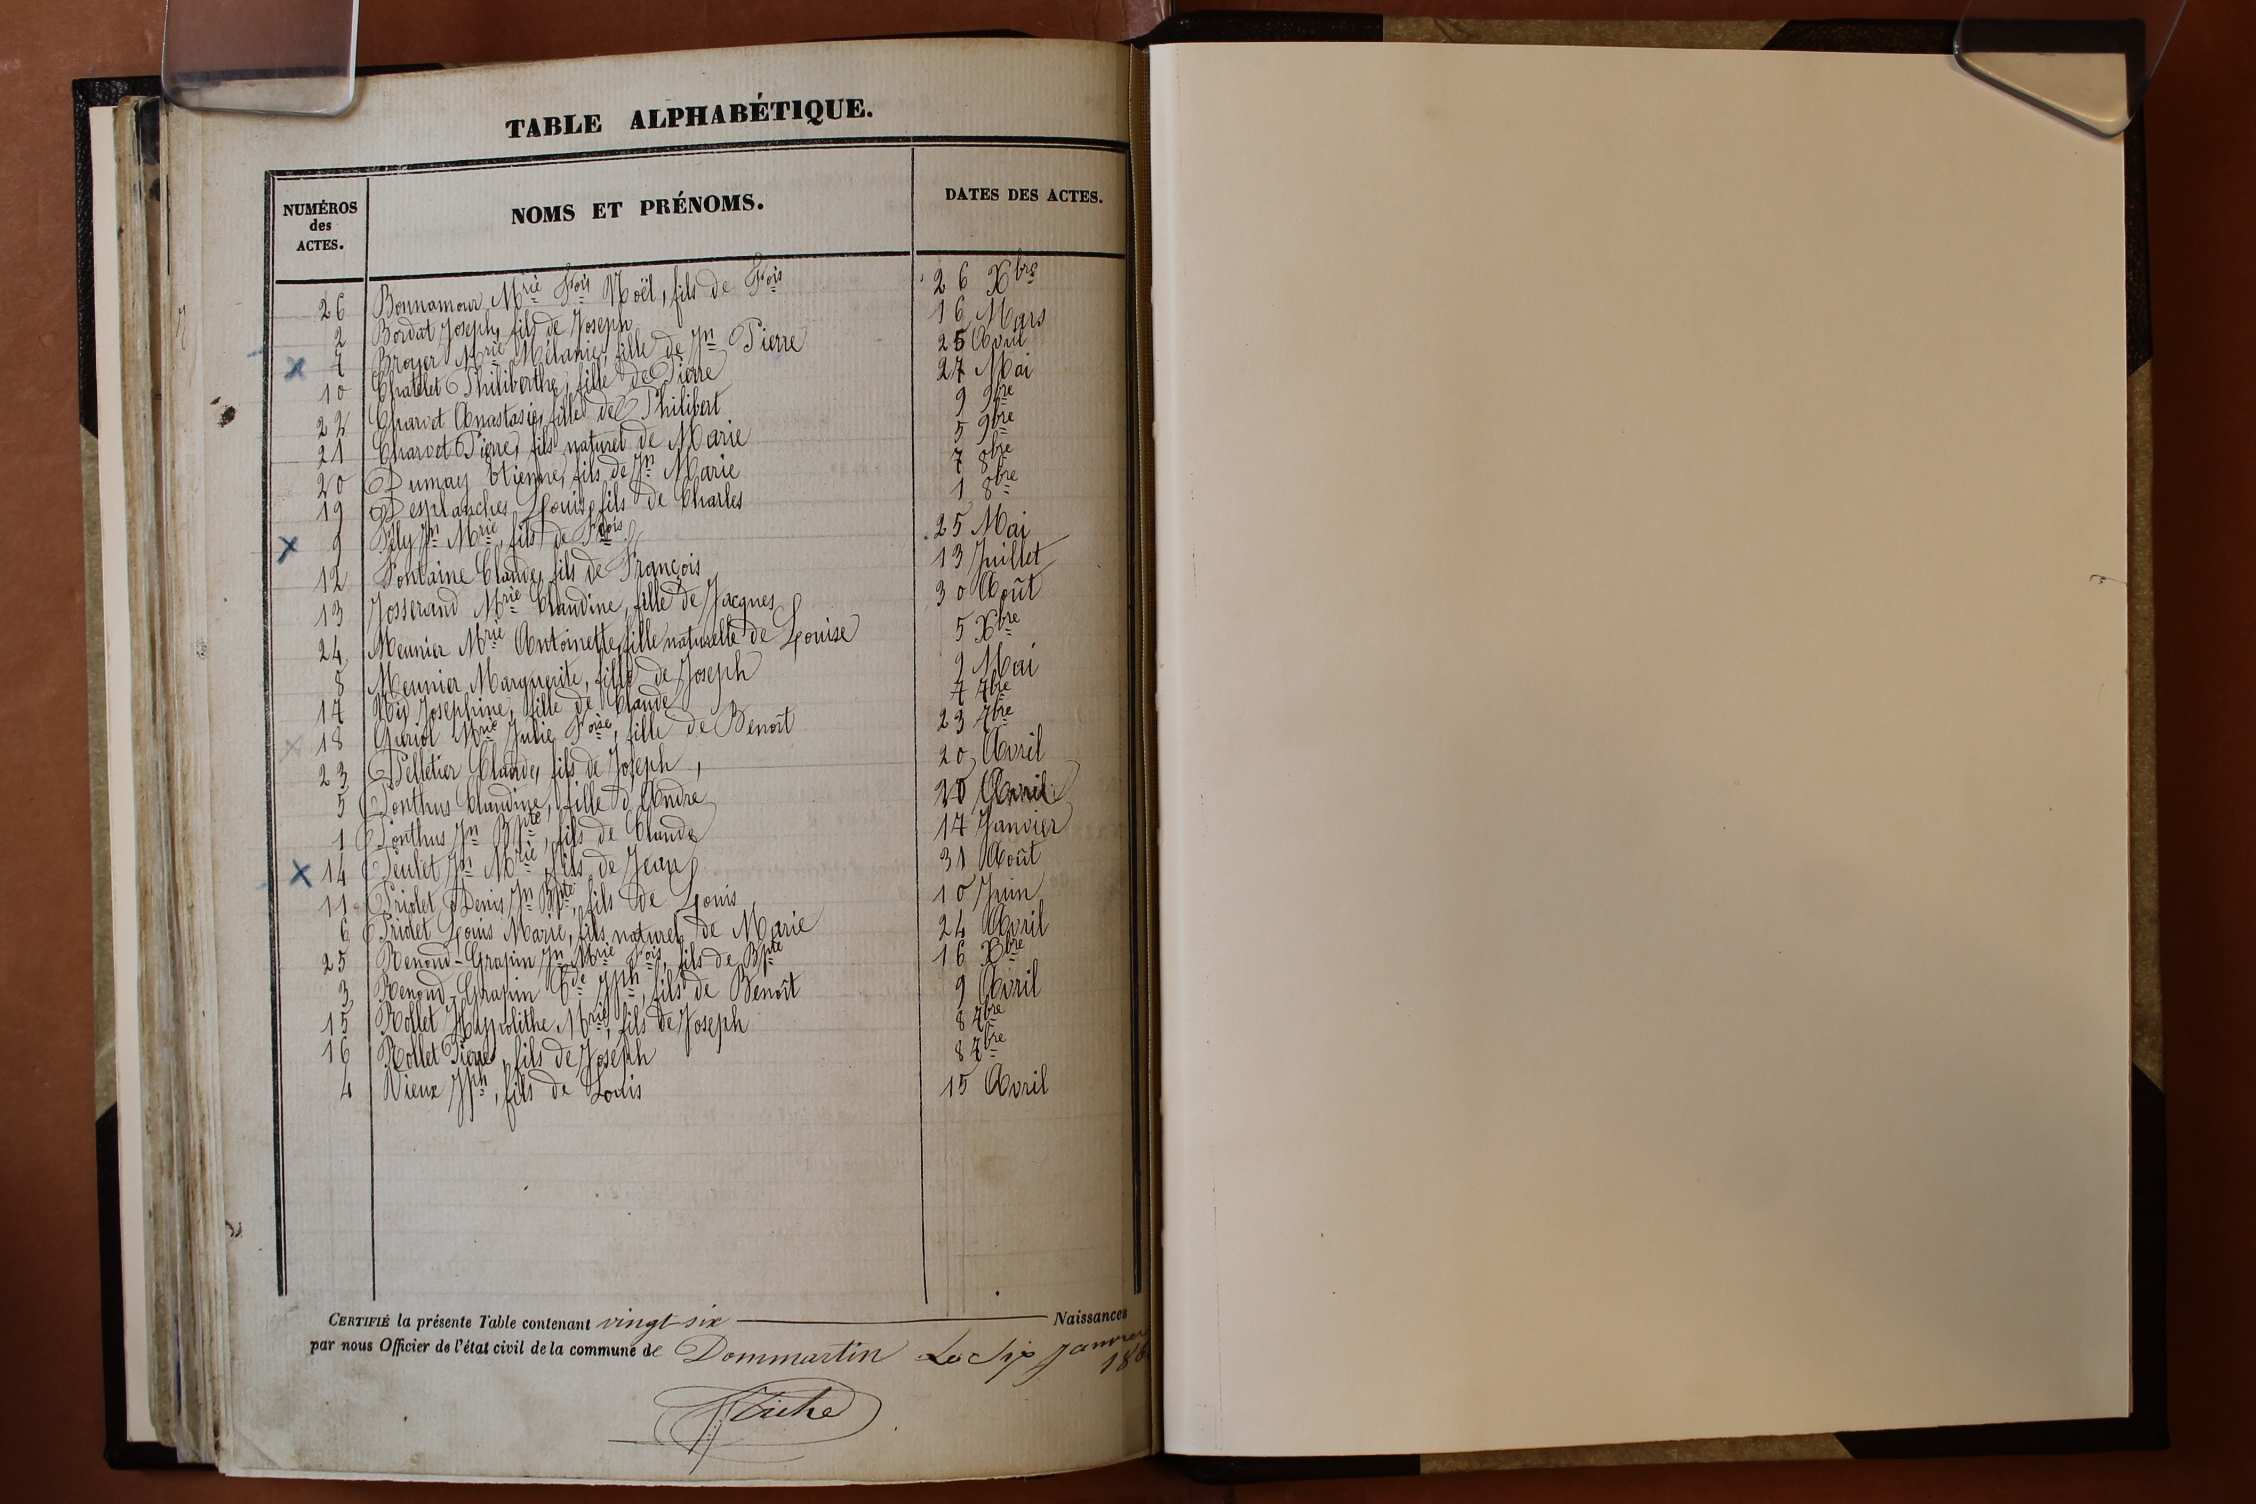 TABLE ALPHABÉTIQUE.
NUMÉROS des ACTES. NOMS ET PRÉNOMS. DATES DES ACTES.
26 Bonnamour Mrie Fois Noël, fils de Fois 26 Xbre
2 Bordat Joseph, fils de Joseph 16 Mars
7 Broyer Mrie Mélanie, fille de Jn Pierre 25 Avril
10 Chatelet Philiberthe, fille de Pierre 27 Mai
22 Charvet Anastasie, fille de Philibert 9 9bre
21 Charvet Pierre, fils naturel de Marie 5 9bre
20 Dumay Etienne, fils de Jn Marie 7 8bre
19 Desplanches Louis, fils de Charles 1 8bre
9 Fély Jn Mrie, fils de Fois 25 Mai
12 Fontaine Claude, fils de François 13 Juillet
13 Josserand Mrie Claudine, fille de Jacques 30 Août
24 Meunier Mrie Antoinette, fille naturelle de Louise 5 Xbre
8 Meunier Marguerite, fille de Joseph 9 Mai
17 Nid Joséphine, fille de Claude 7 7bre
18 Mrie Julie Foise, fille de Benoît 23 7bre
23 Pelletier Claude, fils de Joseph, 20 Avril
5 Ponthus Claudine, fille d'André 20 Avril
1 Ponthus Jn Bpte, fils de Claude 17 Janvier
14 Jn Mrie, fils de Jean 31 Août
11 Priolet Denis Jn Bpte, fils de Louis 10 Juin
6 Priolet Louis Marie, fils naturel de Marie 24 Avril
25 Renoud-Grapin Jn Mrie Fois, fils de Bpte 16 Xbre
3 Renoud-Grapin Cde Jph, fils de Benoît 9 Avril
15 Rollet Hyppolithe Mrie, fils de Joseph 8 7bre
16 Rollet Pierre, fils de Joseph 8 7bre
4 Vieux Jph, fils de Louis 15 Avril
CERTIFIÉ la présente Table contenant vingt-six Naissances
par nous Officier de l'état civil de la commune de Dommartin Le Six Janvier
186